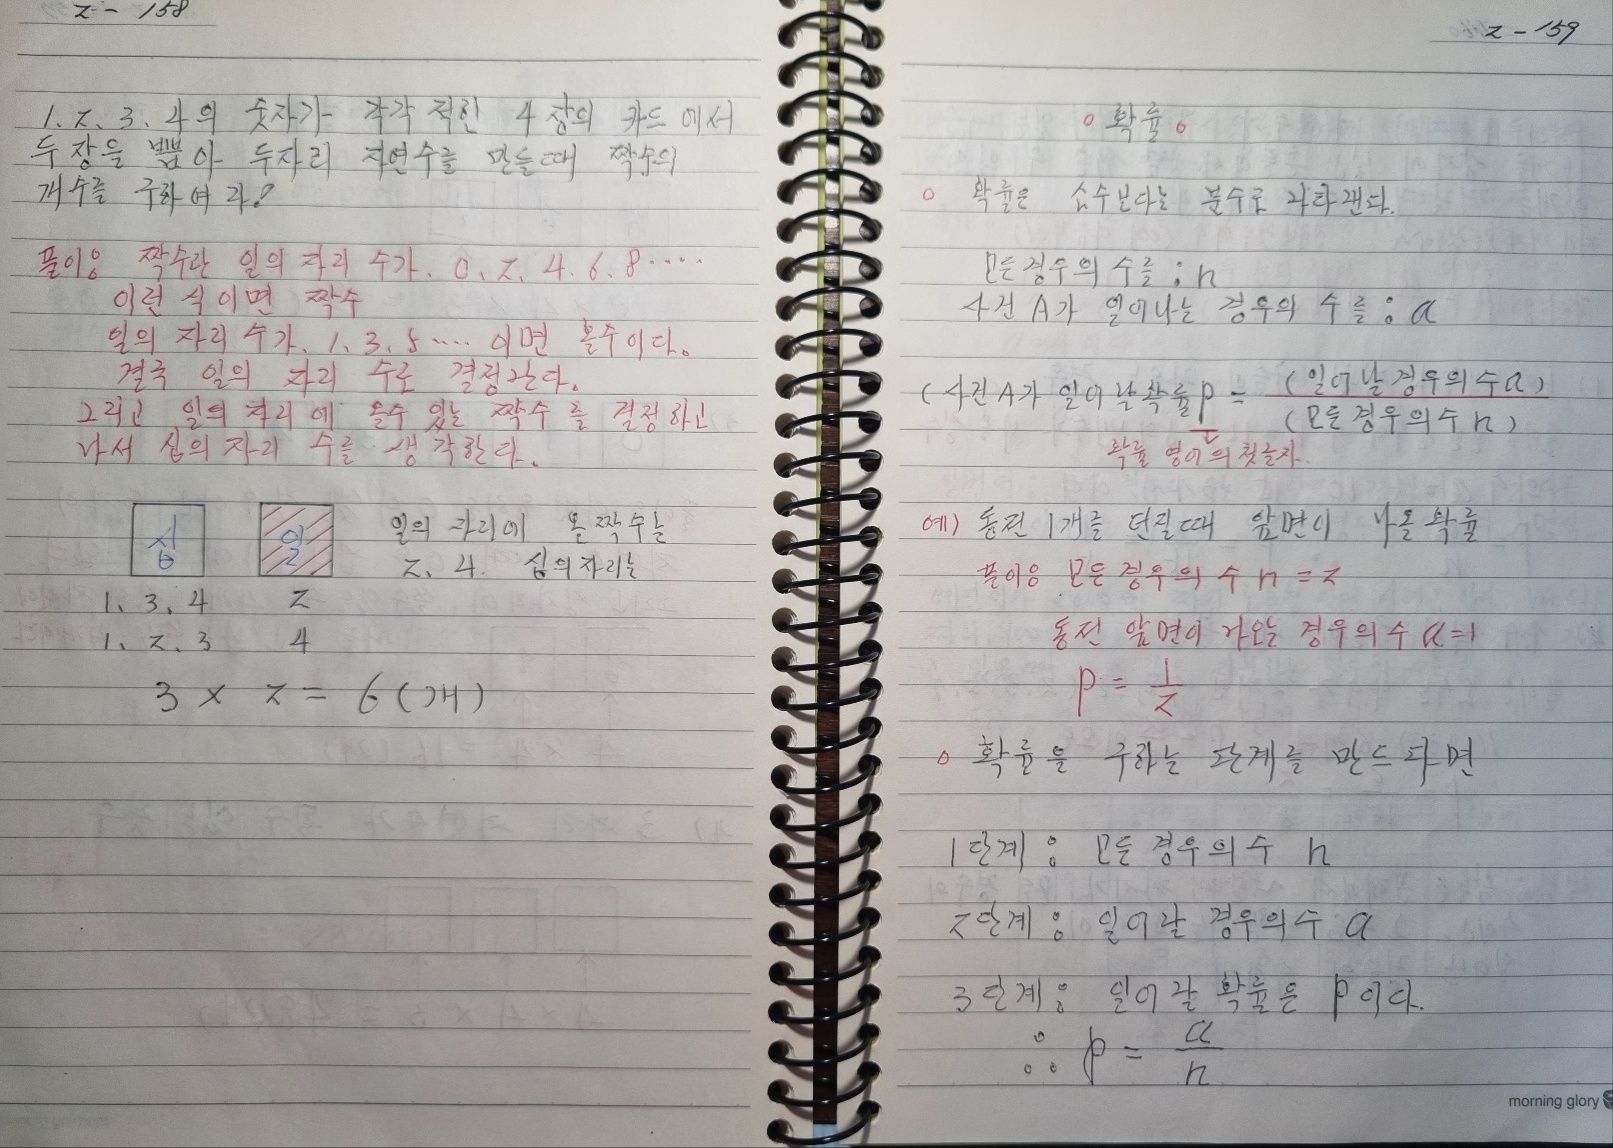 2 - 158
1. 2. 3. 4의 숫자가 각각 적힌 4장의 카드에서
두장을 뽑아 두자리 자연수를 만들때 짝수의
개수를 구하여라?
풀이: 짝수란 일의 자리 수가. 0. 2. 4. 6. 8 ....
이런 식이면 짝수
일의 자리 수가. 1. 3. 5 .... 이면 홀수이다.
결국 일의 자리 수로 결정난다.
그리고 일의 자리에 올수 있는 짝수를 결정하고
나서 십의 자리 수를 생각한다.
십 일 일의 자리에 온 짝수는
2. 4. 십의 자리는
1. 3. 4 2
1. 2. 3 4
3 × 2 = 6 (개)
2 - 159
확률
확률은 소수보다는 분수로 나타낸다.
모든경우의 수를 : n
사건 A가 일어나는 경우의 수를 : a
(사건 A가 일어날확률 p = (일어날경우의수 a) / (모든경우의수 n)
확률 영어의 첫글자.
예) 동전 1개를 던질때 앞면이 나올확률
풀이: 모든경우의 수 n = 2
동전 앞면이 나오는 경우의수 a=1
p = 1/2
확률을 구하는 단계를 만드다면
1단계 : 모든경우의수 n
2단계 : 일어날 경우의수 a
3단계 : 일어날 확률은 p이다.
∴ p = a/n
morning glory